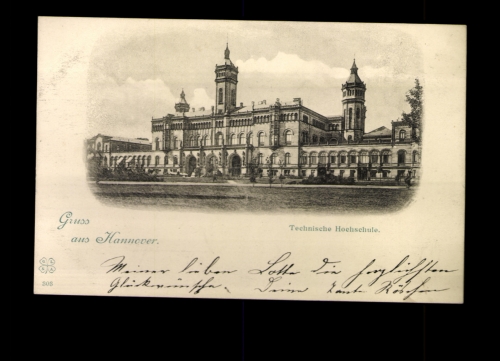 Gruss
aus Hannover.
Technische Hochschule.
Meiner lieben Lotte die herzlichsten
Glückwünsche. Deine Tante Röschen